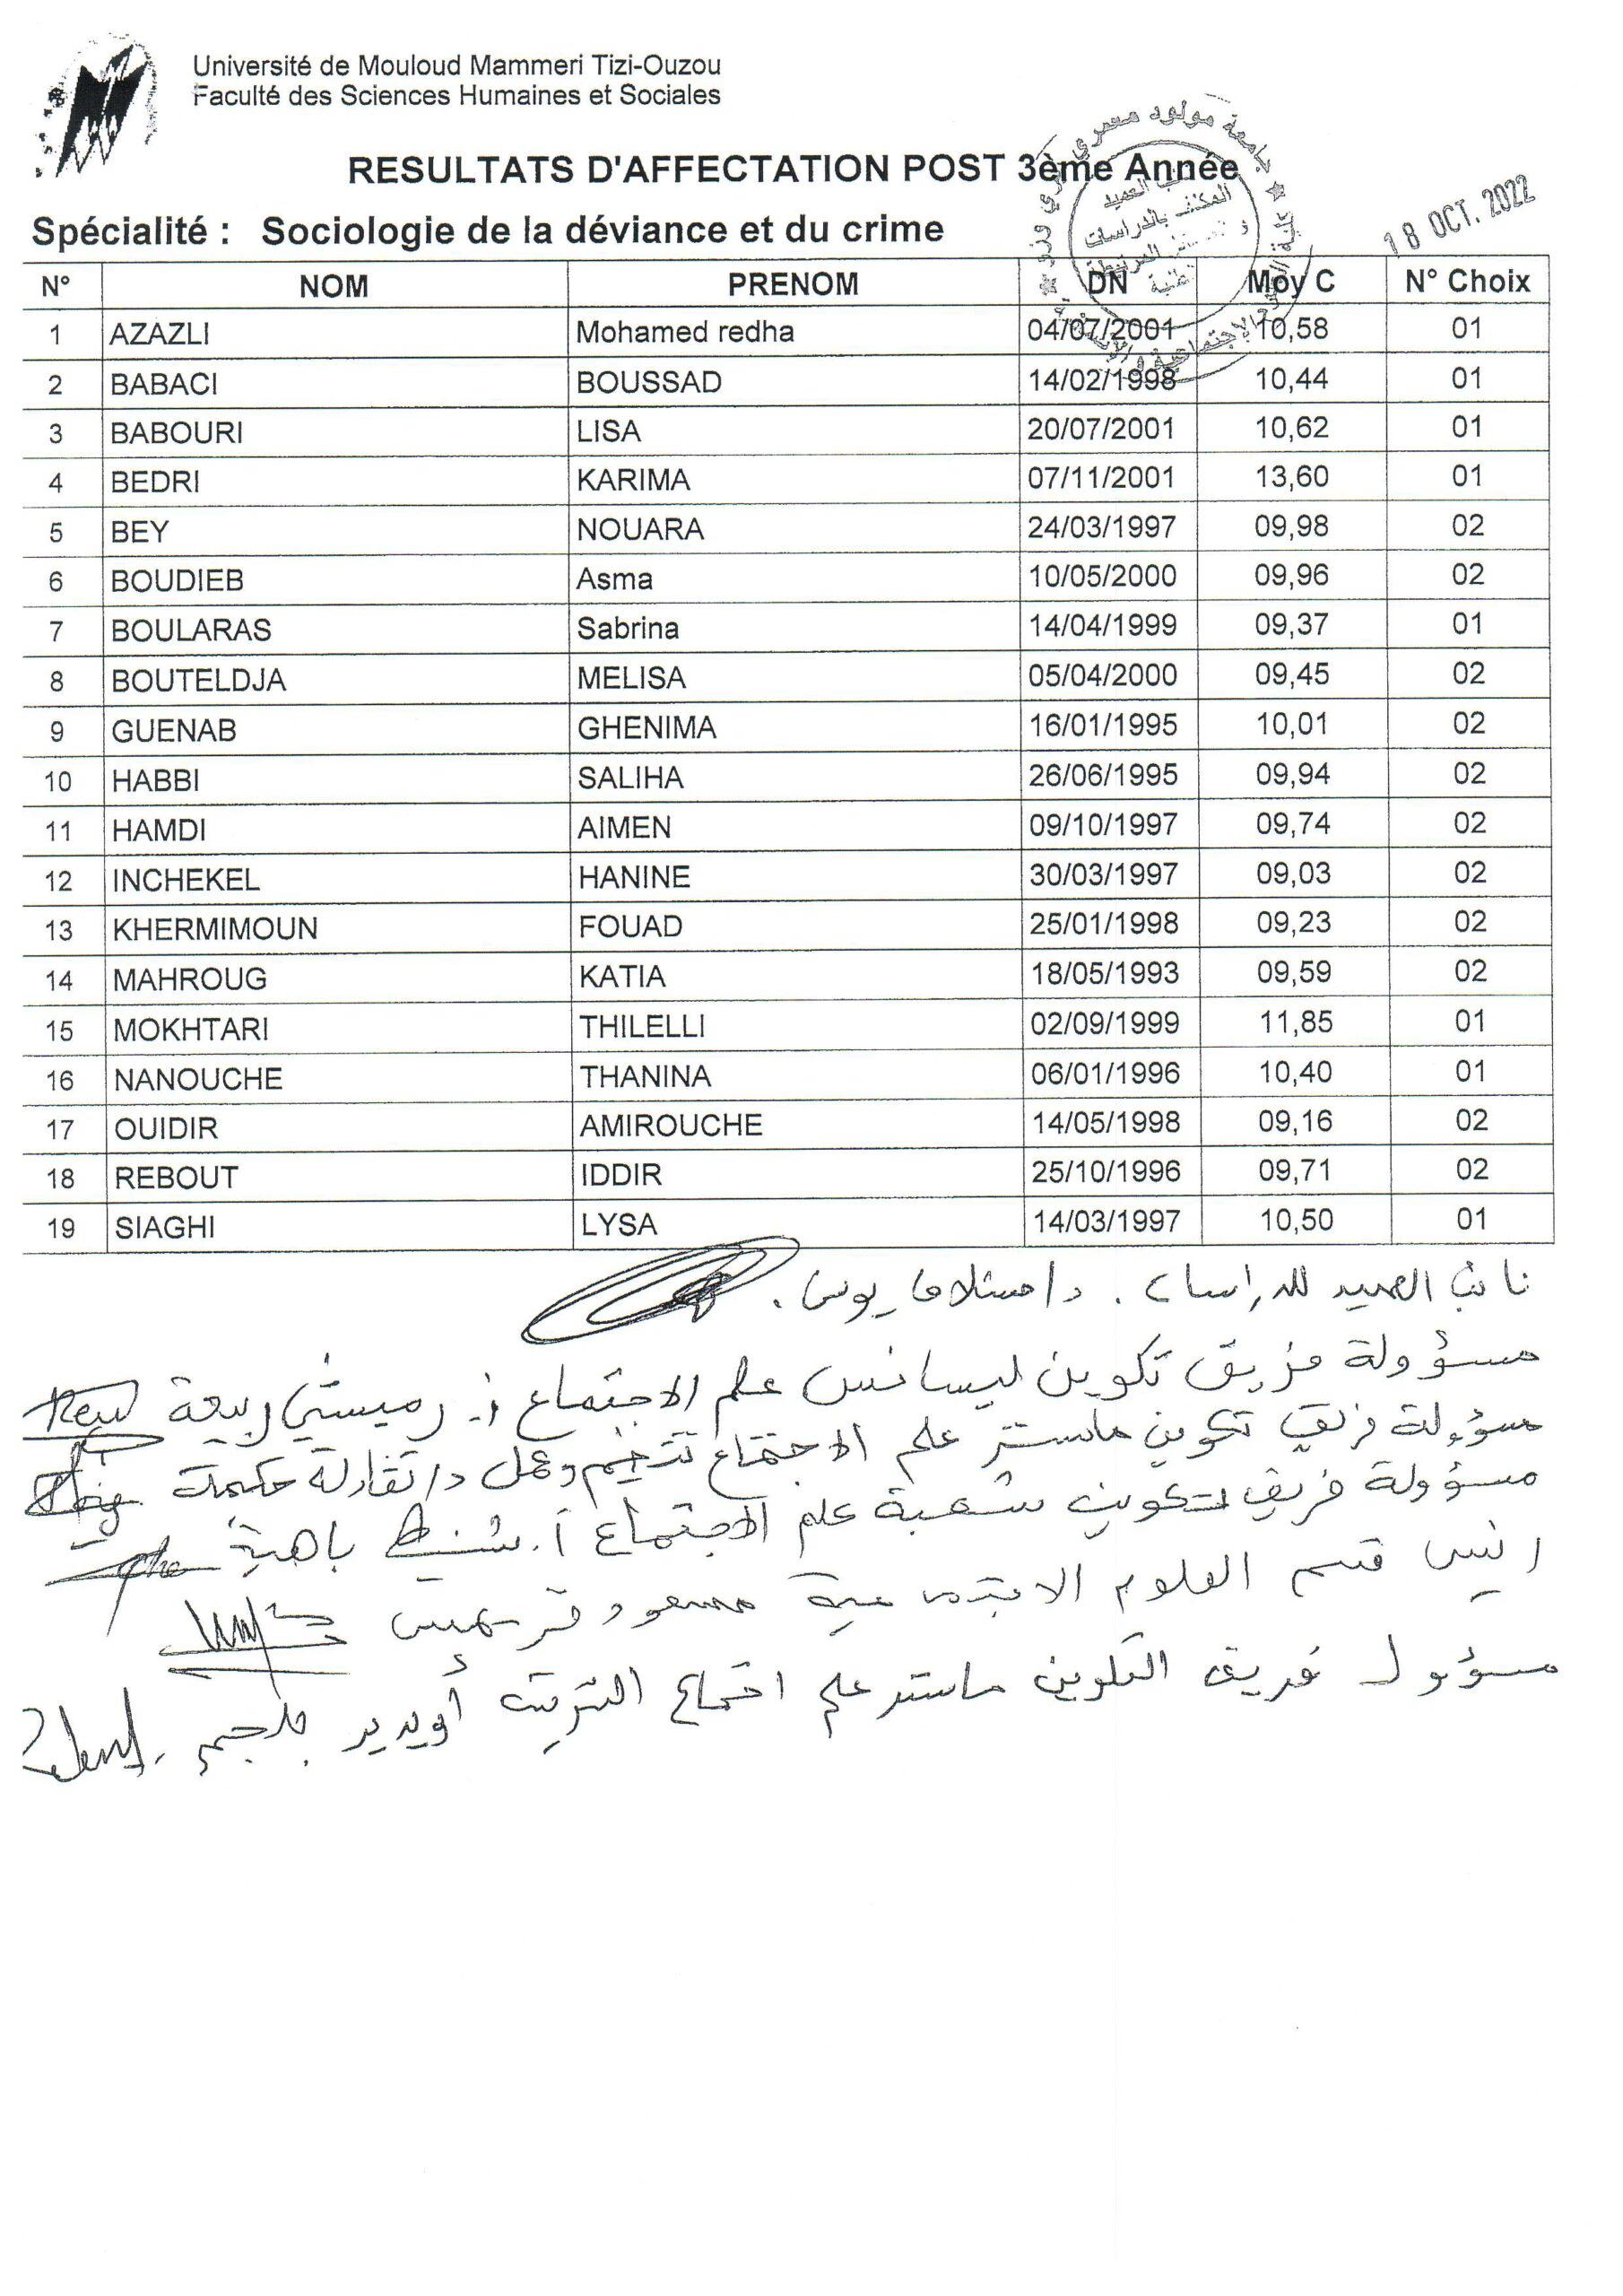 Université de Mouloud Mammeri Tizi-Ouzou
Faculté des Sciences Humaines et Sociales
RESULTATS D'AFFECTATION POST 3ème Année
18 OCT. 2022
Spécialité : Sociologie de la déviance et du crime
N° NOM PRENOM DN Moy C N° Choix
1 AZAZLI Mohamed redha 04/07/2001 10,58 01
2 BABACI BOUSSAD 14/02/1998 10,44 01
3 BABOURI LISA 20/07/2001 10,62 01
4 BEDRI KARIMA 07/11/2001 13,60 01
5 BEY NOUARA 24/03/1997 09,98 02
6 BOUDIEB Asma 10/05/2000 09,96 02
7 BOULARAS Sabrina 14/04/1999 09,37 01
8 BOUTELDJA MELISA 05/04/2000 09,45 02
9 GUENAB GHENIMA 16/01/1995 10,01 02
10 HABBI SALIHA 26/06/1995 09,94 02
11 HAMDI AIMEN 09/10/1997 09,74 02
12 INCHEKEL HANINE 30/03/1997 09,03 02
13 KHERMIMOUN FOUAD 25/01/1998 09,23 02
14 MAHROUG KATIA 18/05/1993 09,59 02
15 MOKHTARI THILELLI 02/09/1999 11,85 01
16 NANOUCHE THANINA 06/01/1996 10,40 01
17 OUIDIR AMIROUCHE 14/05/1998 09,16 02
18 REBOUT IDDIR 25/10/1996 09,71 02
19 SIAGHI LYSA 14/03/1997 10,50 01
نائب العميد للدراسات
مسؤولة فريق تكوين ليسانس علم الاجتماع أ. رميشي ربيعة
مسؤولة فريق تكوين ماستر علم الاجتماع تنظيم وعمل
مسؤولة فريق تكوين شعبة علم الاجتماع أ. شنيط باهية
رئيس قسم العلوم الاجتماعية مسعود
مسؤول فريق التكوين ماستر علم اجتماع التربية أويدير